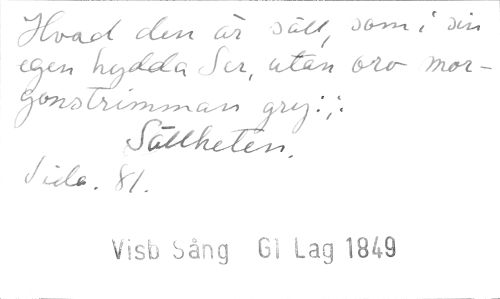 Hvad den är säll, som i sin
egen hydda Ser, utan oro mor-
gonstrimman gry:,:
Sällheten.
Sida. 81.
Visb Sång Gl Lag 1849